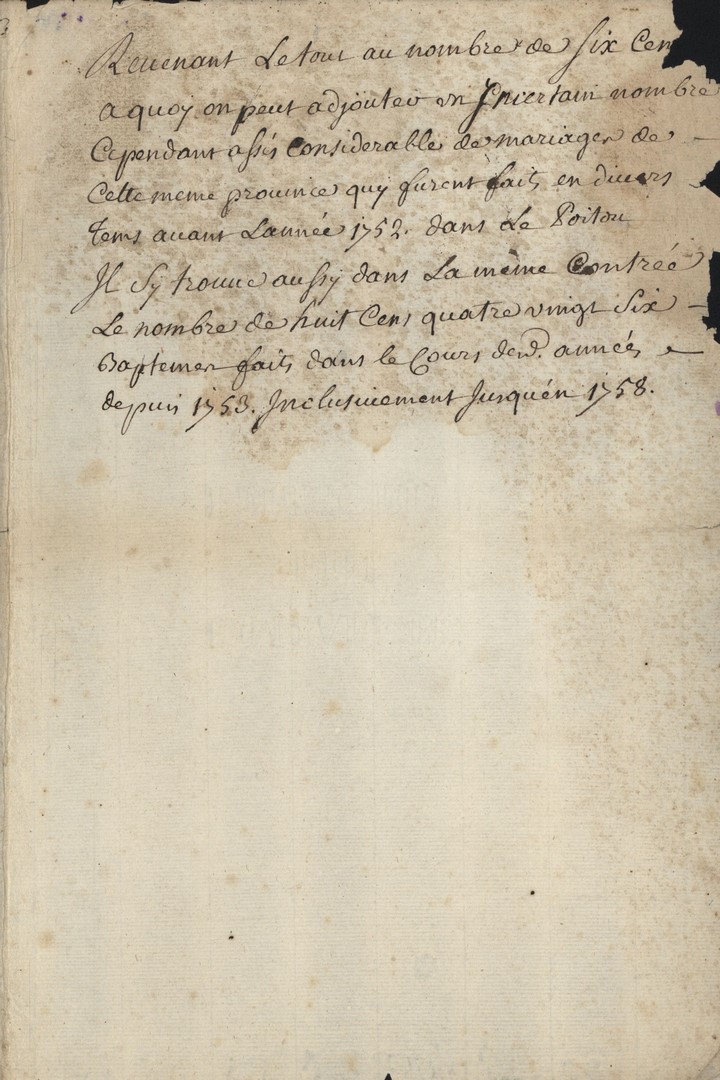 Reuenant Le tout au nombre de Six Cen
a quoy on peut adjouter un Incertain nombre
Cependant assés Considerable de mariages de
Cette meme province quy furent faits en diuers
Tems auant Lannée 1752. dans Le Poitou
Il Sy trouue aussy dans La même Contréé
Le nombre de huit Cens quatre vingt Six
Baptemes faits dans le Cours desd. années
depuis 1753. Inclusiuement Jusquén 1758.